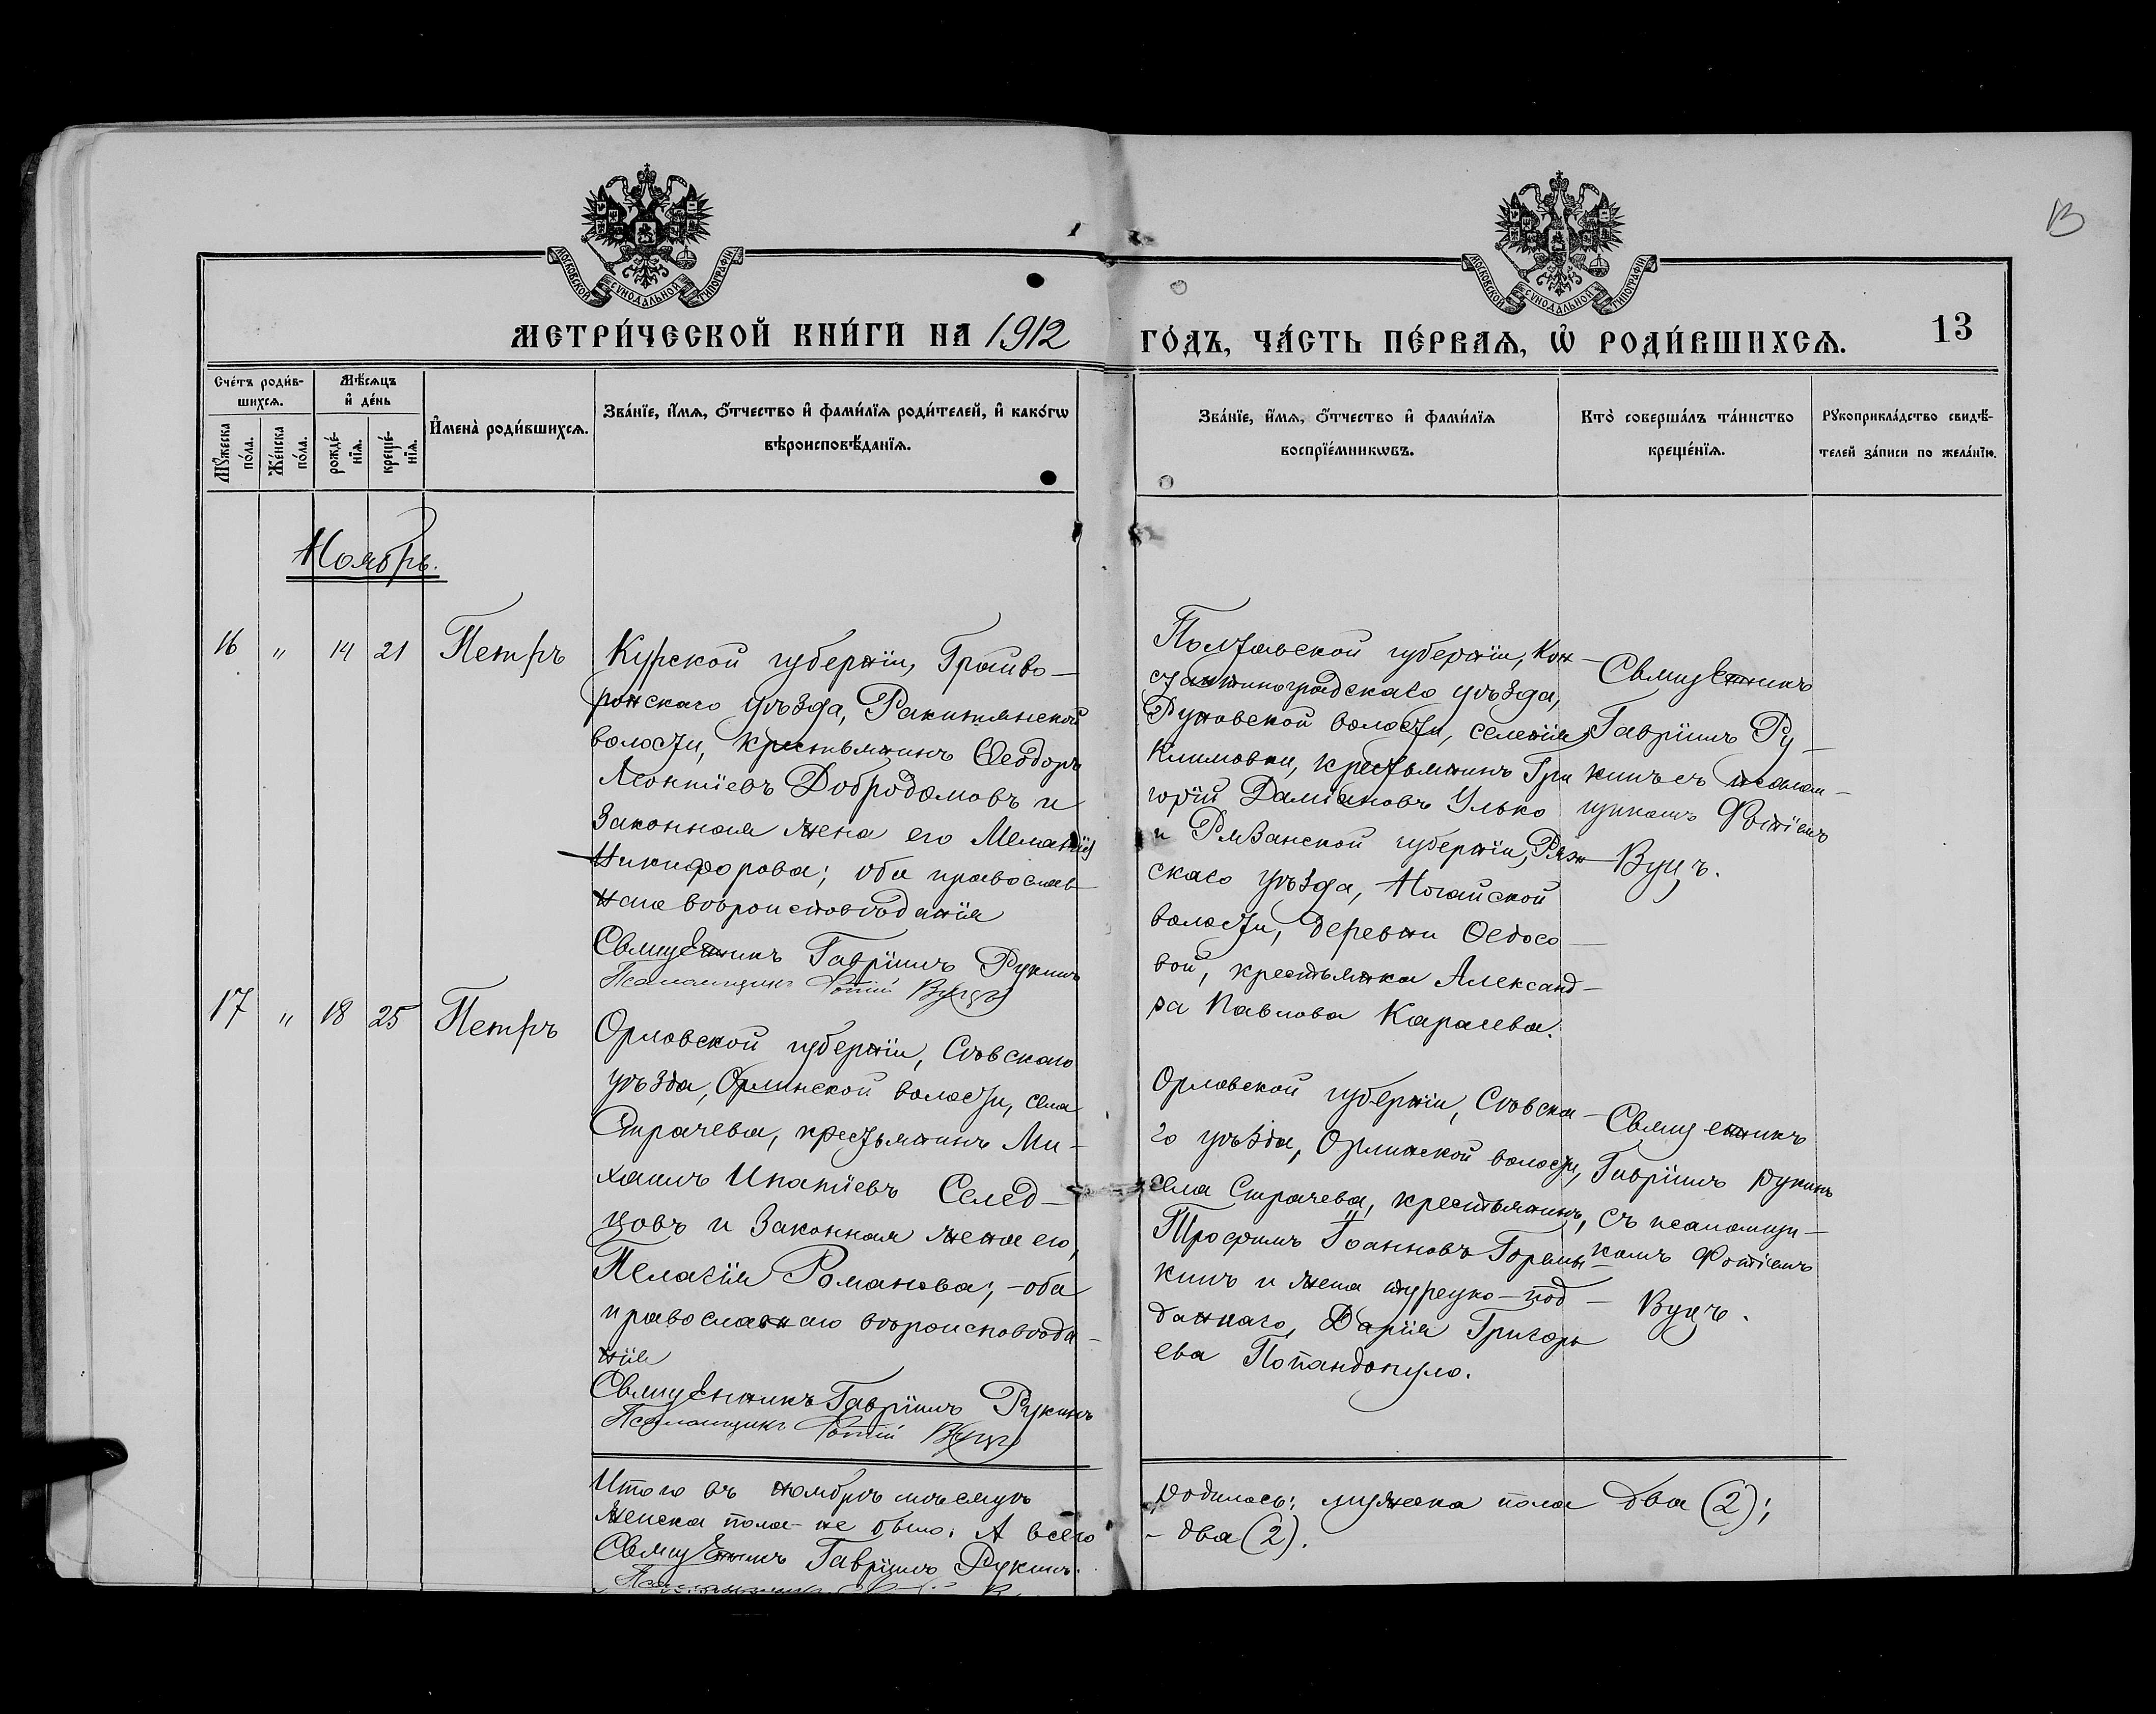 13
МОСКОВСКОЙ СУНОДАЛЬНОЙ ТИПОГРАФІИ
МОСКОВСКОЙ СУНОДАЛЬНОЙ ТИПОГРАФІИ
МЕТРИ́ЧЕСКОЙ КНИ́ГИ НА 1912
ГО́ДЪ, ЧА́СТЬ ПЕ́РВАѦ, Ѡ҆ РОДИ́ВШИХСѦ.
13
Сче́тъ роди́в-
шихсѧ.
Мѣ́сѧцъ
и҆ де́нь
Мꙋ́жеска
по́ла.
Же́нска
по́ла.
рожде́-
нїѧ.
креще́-
нїѧ.
И҆мена̀ роди́вшихсѧ.
Зва́нїе, и҆́мѧ, ѻ҆́тчество и҆ фами́лїѧ роди́телей, и҆ како́гѡ
вѣроисповѣ́данїѧ.
Зва́нїе, и҆́мѧ, ѻ҆́тчество и҆ фами́лїѧ
воспрїе́мникѡвъ.
Кто̀ соверша́лъ та́инство
креще́нїѧ.
Рꙋкоприкла́дство свидѣ́-
телей за́писи по жела́нїю.
Ноябрь.
16 " 14 21 Петръ
Курской губерніи, Грайво-
ронскаго уѣзда, Ракитянской
волости, крестьянинъ Ѳеодоръ
Леонтіевъ Добродомовъ и
законная жена его Меланія
Никифорова; оба православ-
наго вѣроисповѣданія
Священникъ Гавріилъ Рукинъ
Псаломщикъ Фотій Вуцъ
Полтавской губерніи, Кон-
стантиноградскаго уѣзда,
Руновской волости, селенія
Климовки, крестьянинъ Гри
горій Даміановъ Улько
и Рязанской губерніи, Ряж-
скаго уѣзда, Ногайской
волости, деревни Ѳедосо-
вой, крестьянка Александ-
ра Павлова Карасева.
Священникъ
Гавріилъ Ру-
кинъ съ псалом-
щикомъ Фотіемъ
Вуцъ.
17 " 18 25 Петръ
Орловской губерніи, Сѣвскаго
уѣзда, Орлинской волости, села
Страчева, крестьянинъ Ми-
хаилъ Ипатіевъ Селед-
цовъ и законная жена его,
Пелагія Романова; - оба
православнаго вѣроисповѣда-
нія
Священникъ Гавріилъ Рукинъ
Псаломщикъ Фотій Вуцъ
Орловской губерніи, Сѣвска-
го уѣзда, Орлинской волости,
села Страчева, крестьянинъ,
Трофимъ Іоанновъ
кинъ и жена турецко-под-
даннаго, Дарія Григорь
ева Попандопуло.
Священникъ
Гавріилъ Рукинъ
съ псаломщи-
комъ Фотіемъ
Вуцъ.
Итого въ ноябрѣ мѣсяцѣ
родилось: мужеска пола два (2);
женска пола - не было. А всего
- два (2).
Священникъ Гавріилъ Рукинъ.